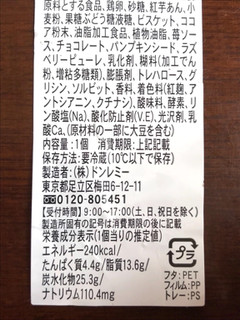 原料とする食品、鶏卵、砂糖、紅芋あん、小
麦粉、果糖ぶどう糖液糖、ビスケット、ココ
ア粉末、油脂加工食品、植物油脂、苺ソー
ス、チョコレート、パンプキンシード、ラズ
ベリーピューレ、乳化剤、糊料(加工でん
粉、増粘多糖類)、膨脹剤、トレハロース、グ
リシン、ソルビット、香料、着色料(紅麹、ア
ントシアニン、クチナシ)、酸味料、酵素、リ
ン酸塩(Na)、酸化防止剤(V.E)、光沢剤、乳
酸Ca、(原材料の一部に大豆を含む)
内容量:1個 消費期限:上記記載
保存方法:要冷蔵(10℃以下)
製造者:(株)ドンレミー
東京都足立区梅田6-12-11
0120-805451
【受付時間】9:00〜17:00(土、日、祝日を除く)
製造所固有の記号は消費期限の後に記載
栄養成分表示(1個当りの推定値)
エネルギー240kcal
たんぱく質4.4g/脂質13.6g
炭水化物25.3g
ナトリウム110.4mg
プラ
フタ:PET
フィルム:PP
トレー:PS